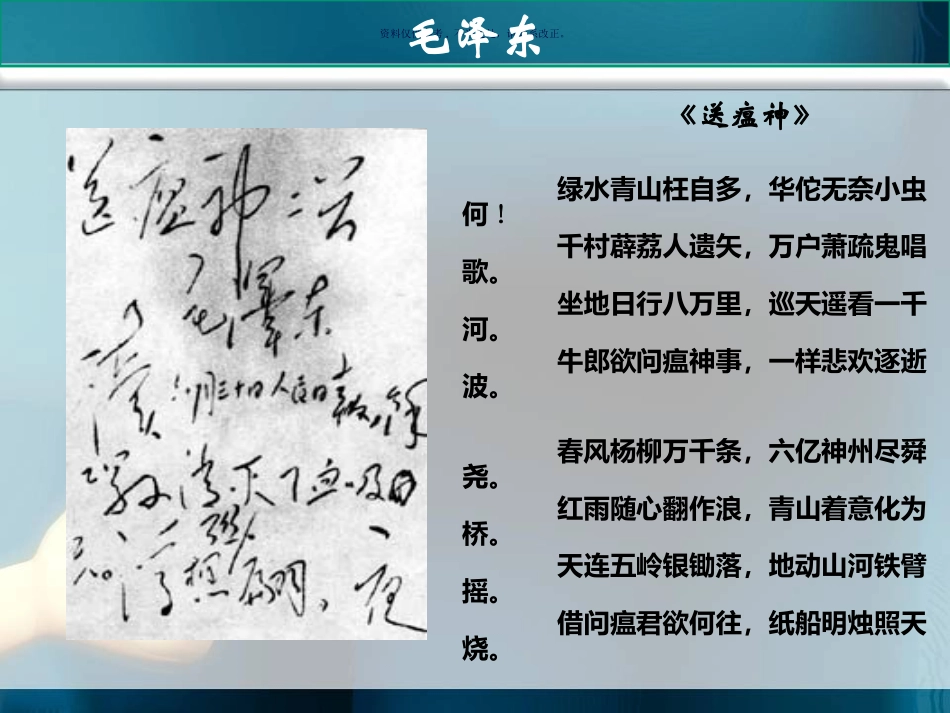 毛泽东
《送瘟神》
绿水青山枉自多，华佗无奈小虫
何！
千村薜荔人遗矢，万户萧疏鬼唱
歌。
坐地日行八万里，巡天遥看一千
河。
牛郎欲问瘟神事，一样悲欢逐逝
波。
春风杨柳万千条，六亿神州尽舜
尧。
红雨随心翻作浪，青山着意化为
桥。
天连五岭银锄落，地动山河铁臂
摇。
借问瘟君欲何往，纸船明烛照天
烧。
送瘟神二首
毛泽东
读六月三十日人民日报，余
江县消灭了血吸虫